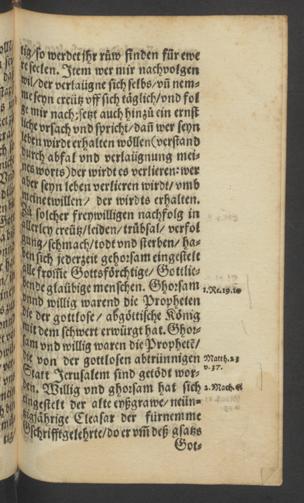 tig/so werdet jhr rüw finden für ewe
re seelen. Item wer mir nachvolgen
wil/der verlaügne sich selbs/vñ nem-
me seyn creütz vff sich täglich/vnd fol
ge mir nach: setzt auch hinzů ein ernst
liche vrsach vnd spricht/dañ wer seyn
leben wirdt erhalten wöllen (verstand
durch abfal vnd verlaügnung mei-
nes worts) der wirdt es verlieren: wer
aber seyn leben verlieren wirdt/vmb
meinet willen/ der wirdts erhalten.
solcher freywilligen nachfolg in
allerley creütz/leiden/trübsal/verfol
gung/schmach/todt vnd sterben/ha-
ben sich jederzeit gehorsam eingestelt
alle from̃e Gottsförchtige/Gottlie-
bende gläubige menschen. Ghorsam
vnnd willig warend die Propheten
die der gottlose/abgöttische König
mit dem schwert erwürgt hat. Ghor-
sam vnd willig waren die Prophetẽ/
die von der gottlosen abtrünnigen
Statt Jerusalem sind getödt wor-
den. Willig vnd ghorsam hat sich
eingestelt der alte eyßgrawe/neün-
tzigjährige Eleasar der fürnemme
Gschrifftgelehrte/do er vm̃ deß gsatzs
Got-
1.Re.19.10
Matth.23
v.37.
2.Mach.6